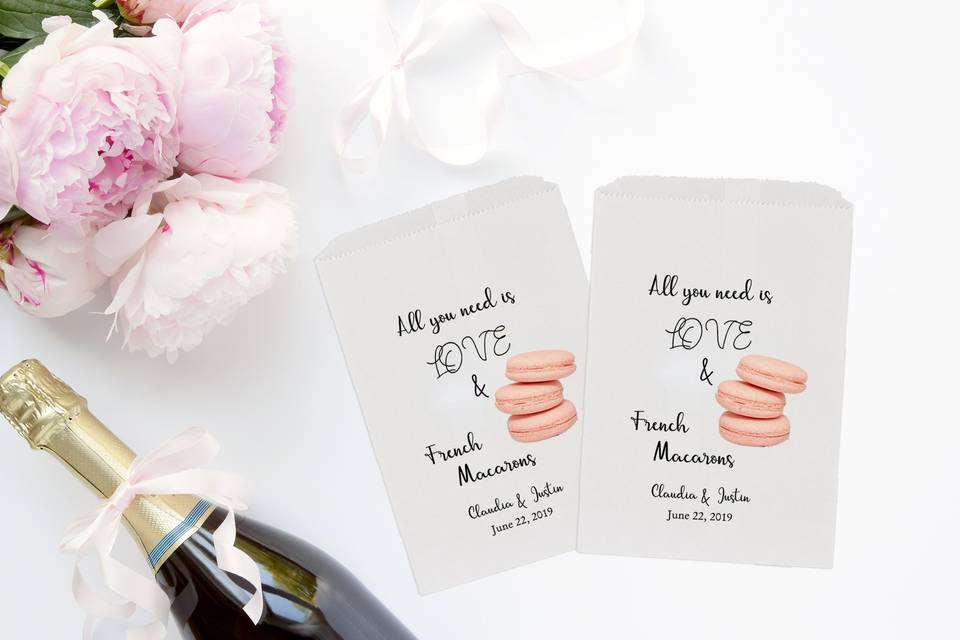 All you need is
LOVE
&
French
Macarons
Claudia & Justin
June 22, 2019
All you need is
LOVE
&
French
Macarons
Claudia & Justin
June 22, 2019